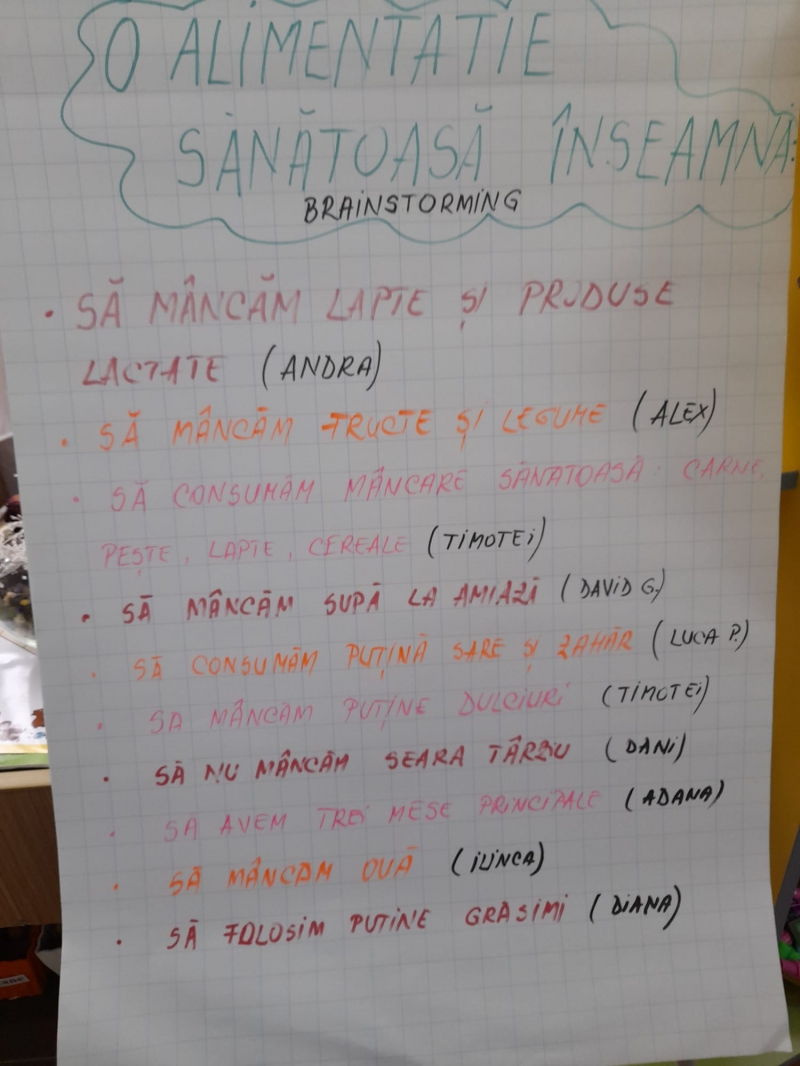 O ALIMENTATIE
SĂNĂTOASĂ ÎNSEAMNĂ:
BRAINSTORMING
• SĂ MÂNCĂM LAPTE ȘI PRODUSE
LACTATE (ANDRA)
• SĂ MÂNCĂM FRUCTE ȘI LEGUME (ALEX)
• SĂ CONSUMĂM MÂNCARE SĂNATOASĂ: CARNE,
PEȘTE, LAPTE, CEREALE (TIMOTEI)
• SĂ MÂNCĂM SUPĂ LA AMIAZĂ (DAVID G.)
• SĂ CONSUMĂM PUȚINĂ SARE ȘI ZAHĂR (LUCA P.)
• SA MÂNCĂM PUȚINE DULCIURI (TIMOTEI)
• SĂ NU MÂNCĂM SEARA TÂRZIU (DANI)
• SA AVEM TREI MESE PRINCIPALE (ADANA)
• SĂ MÂNCAM OUĂ (ILINCA)
• SĂ FOLOSIM PUTINE GRASIMI (DIANA)